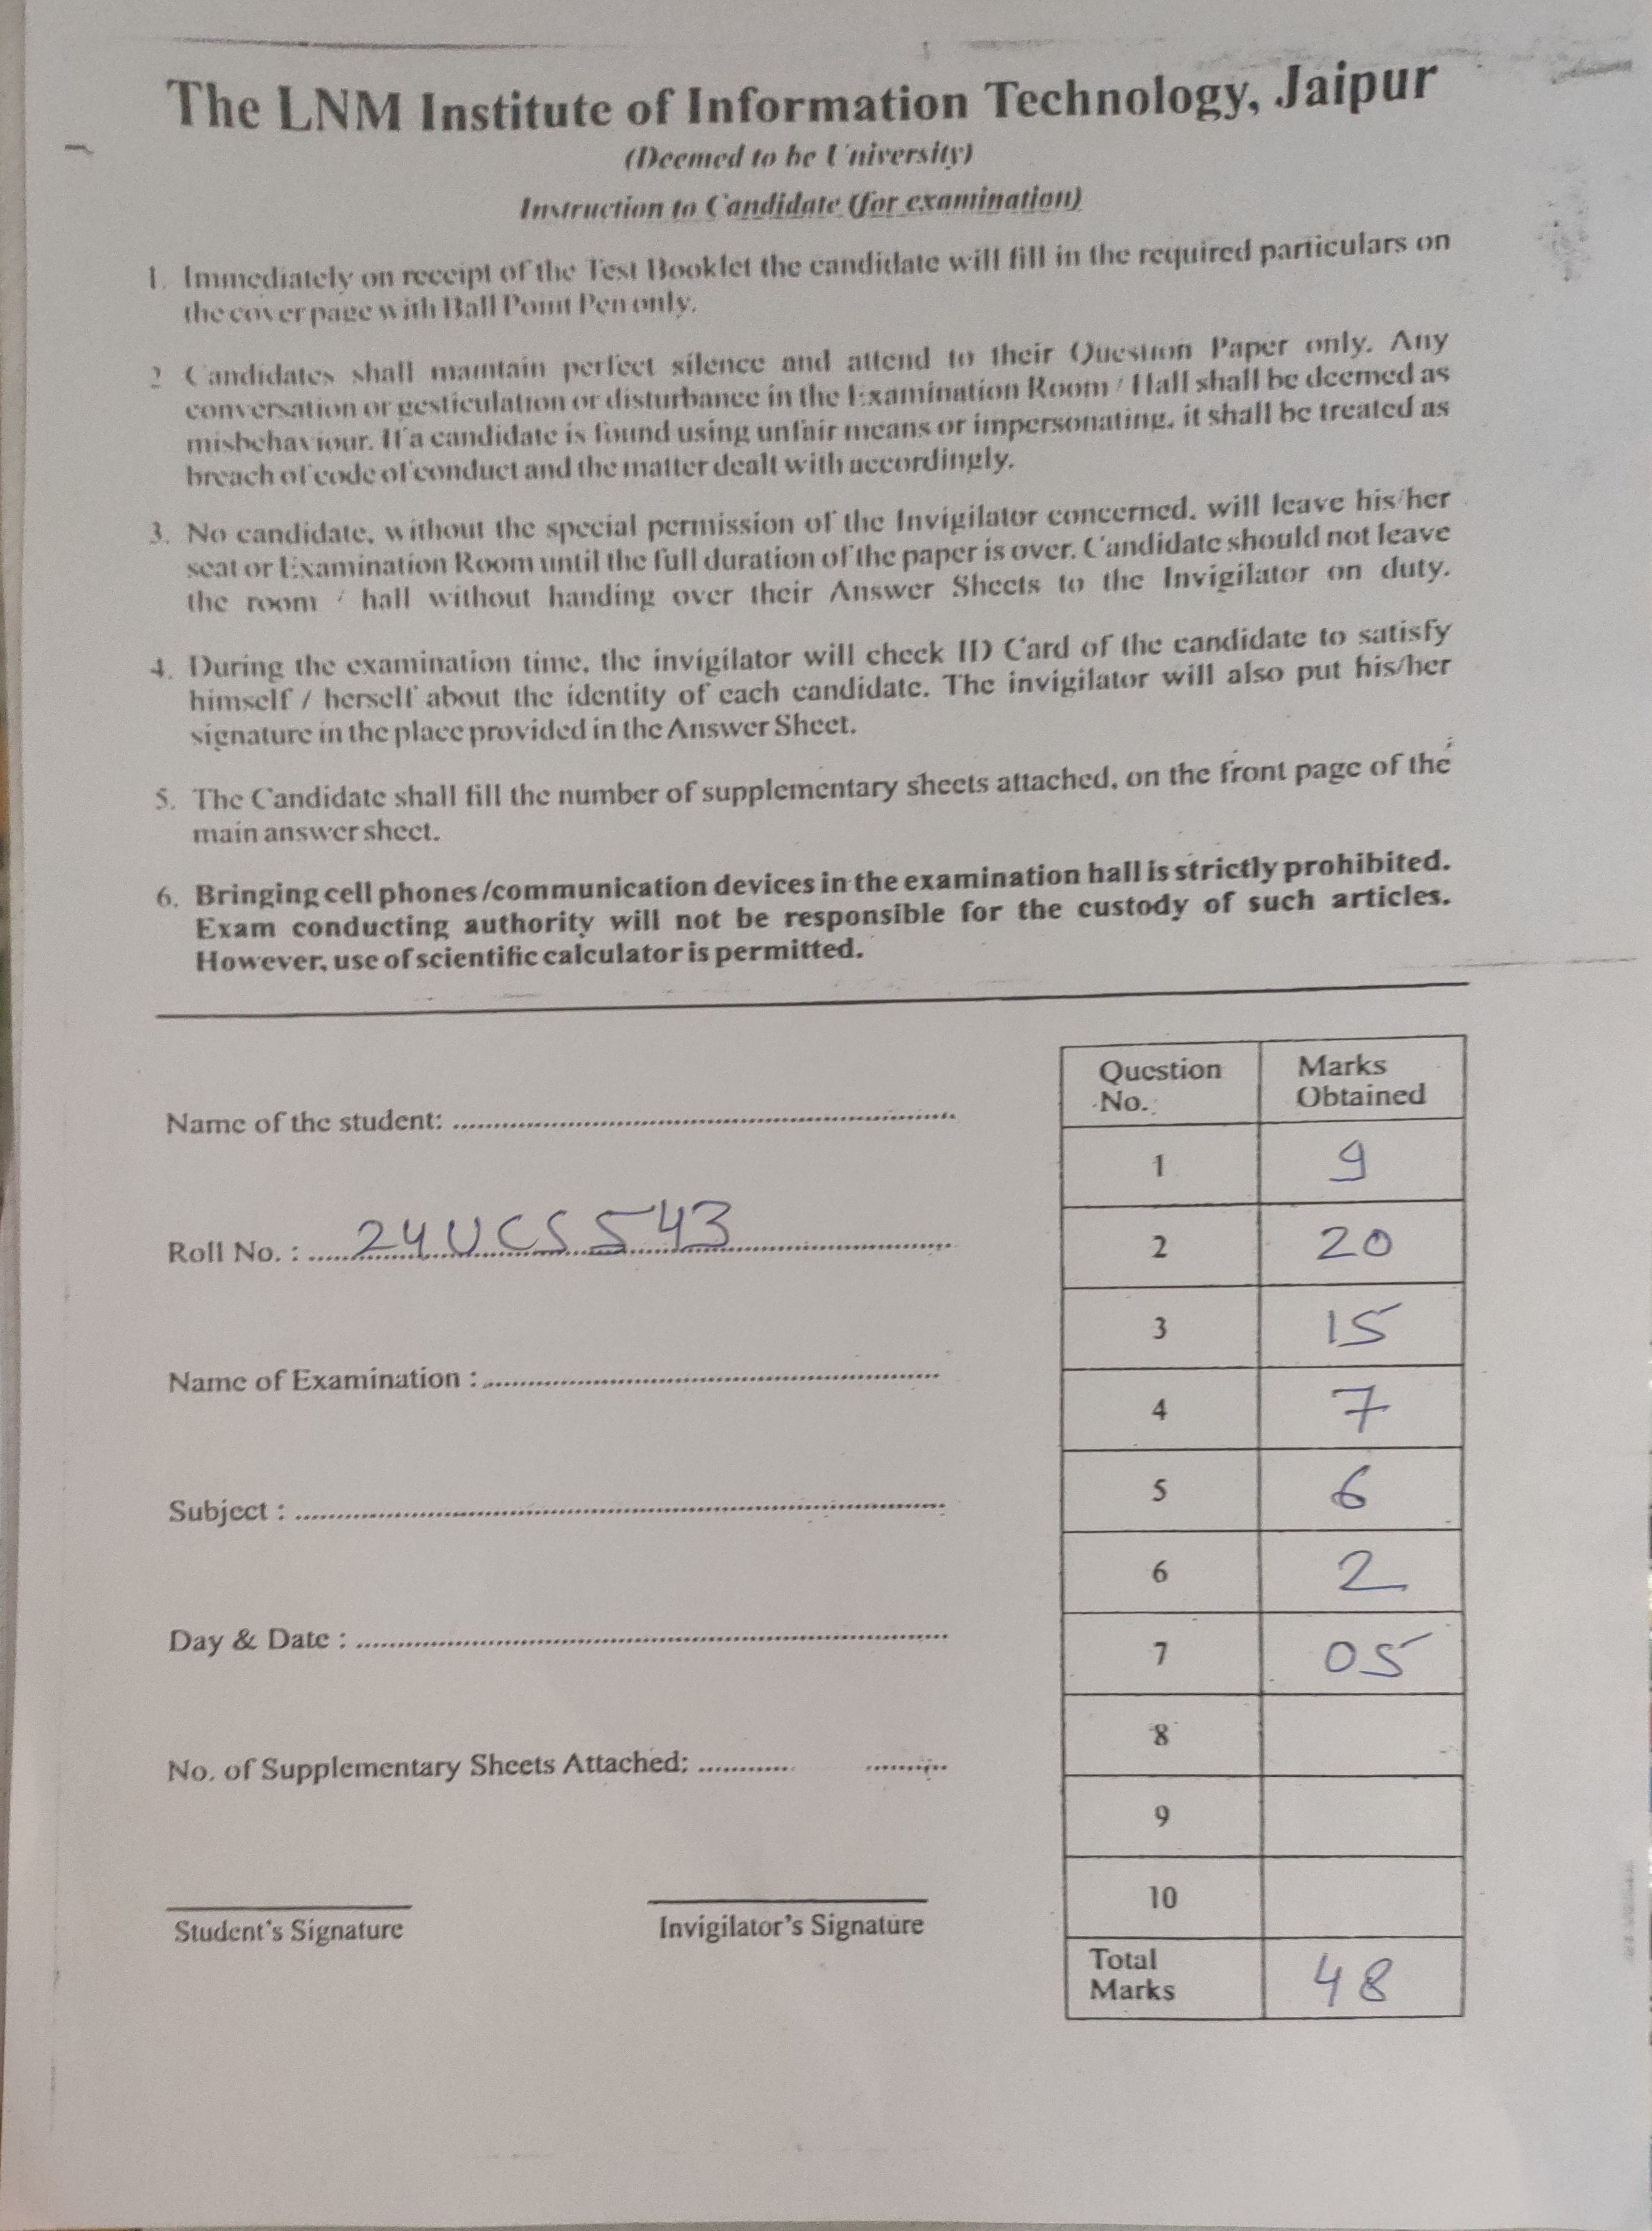 The LNM Institute of Information Technology, Jaipur
(Deemed to be University)
Instruction to Candidate (for examination)
1. Immediately on receipt of the Test Booklet the candidate will fill in the required particulars on
the cover page with Ball Point Pen only.
2 Candidates shall maintain perfect silence and attend to their Question Paper only. Any
conversation or gesticulation or disturbance in the Examination Room / Hall shall be deemed as
misbehaviour. If a candidate is found using unfair means or impersonating, it shall be treated as
breach of code of conduct and the matter dealt with accordingly.
3. No candidate, without the special permission of the Invigilator concerned, will leave his/her
seat or Examination Room until the full duration of the paper is over. Candidate should not leave
the room / hall without handing over their Answer Sheets to the Invigilator on duty.
4. During the examination time, the invigilator will check ID Card of the candidate to satisfy
himself / herself about the identity of each candidate. The invigilator will also put his/her
signature in the place provided in the Answer Sheet.
5. The Candidate shall fill the number of supplementary sheets attached, on the front page of the
main answer sheet.
6. Bringing cell phones/communication devices in the examination hall is strictly prohibited.
Exam conducting authority will not be responsible for the custody of such articles.
However, use of scientific calculator is permitted.
Name of the student:
Roll No. : 24UCS543
Name of Examination :
Subject :
Day & Date :
No. of Supplementary Sheets Attached:
Student's Signature Invigilator's Signature
Question No. Marks Obtained
1 9
2 20
3 15
4 7
5 6
6 2
7 05
8
9
10
Total Marks 48